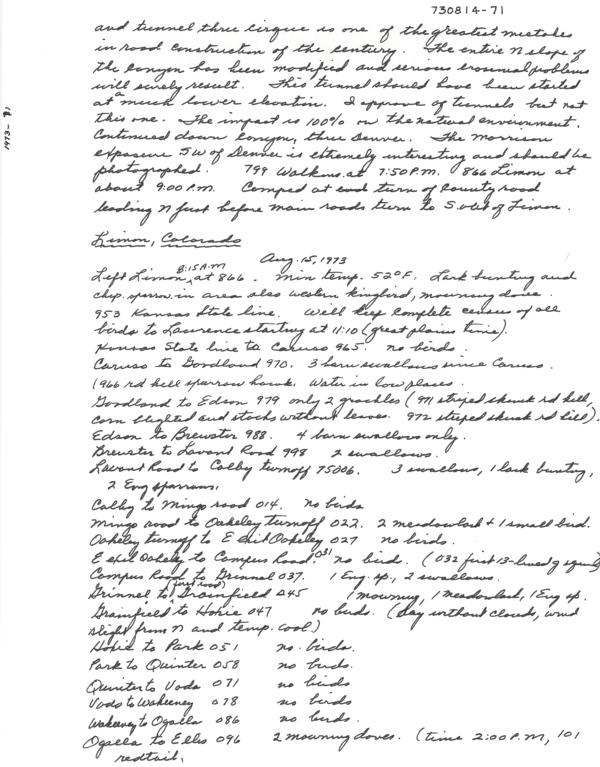 730814-71
1973-
and tunnel three cirque is one of the greatest mistakes
in road construction of the century. The entire N slope of
the canyon has been modified and serious erosional problems
will surely result. This tunnel should have been started
at a much lower elevation. I approve of tunnels but not
this one. The impact is 100% on the natural environment.
Continued down canyon, thru Denver. The Morrison
exposure SW of Denver is extremely interesting and should be
photographed. 799 Watkins at 7:50 P.M. 866 Limon at
about 9:00 P.M. Camped at end turn of county road
leading N just before main roads turn to S. out of Limon.
Limon, Colorado
Aug. 15, 1973
Left Limon 8:15 A.M. at 866. Min temp. 52°F. Lark bunting and
chip. sparrow in area also western kingbird, mourning dove.
953 Kansas State line. Will keep complete census of all
birds to Lawrence starting at 11:10 (great plains time).
Kansas State line to Caruso 965. no birds.
Caruso to Goodland 970. 3 barn swallows since Caruso.
(966 rd kill sparrow hawk. Water in low places.
Goodland to Edson 979 only 2 grackles (971 striped skunk rd kill,
corn blighted and stocks without leaves. 972 striped skunk rd kill).
Edson to Brewster 988. 4 barn swallows only.
Brewster to Levant Road 998 2 swallows.
Levant Road to Colby turnoff 75006. 3 swallows, 1 lark bunting,
2 Eng sparrows.
Colby to Mingo road 014. No birds
Mingo road to Oakeley turnoff 022. 2 meadowlark + 1 small bird.
Oakley turnoff to E exit Oakley 027 no birds.
E exit Oakely to Campus Road 031 no bird. (032 first 13-lined g squirrel)
Campus Road to Grinnel 037. 1 Eng. sp., 2 swallows.
Grinnel to (first road) Grainfield 045 1 mourning, 1 meadowlark, 1 Eng sp.
Grainfield to Hoxie 047 no birds. (day without clouds, wind
slight from N and temp. cool)
Hoxie to Park 051 no birds.
Park to Quinter 058 no birds.
Quinter to Voda 071 no birds
Voda to Wakeeney 078 no birds
Wakeeney to Ogalla 086 no birds.
Ogalla to Ellis 096 2 mourning doves. (time 2:00 P.M, 101
redtail,